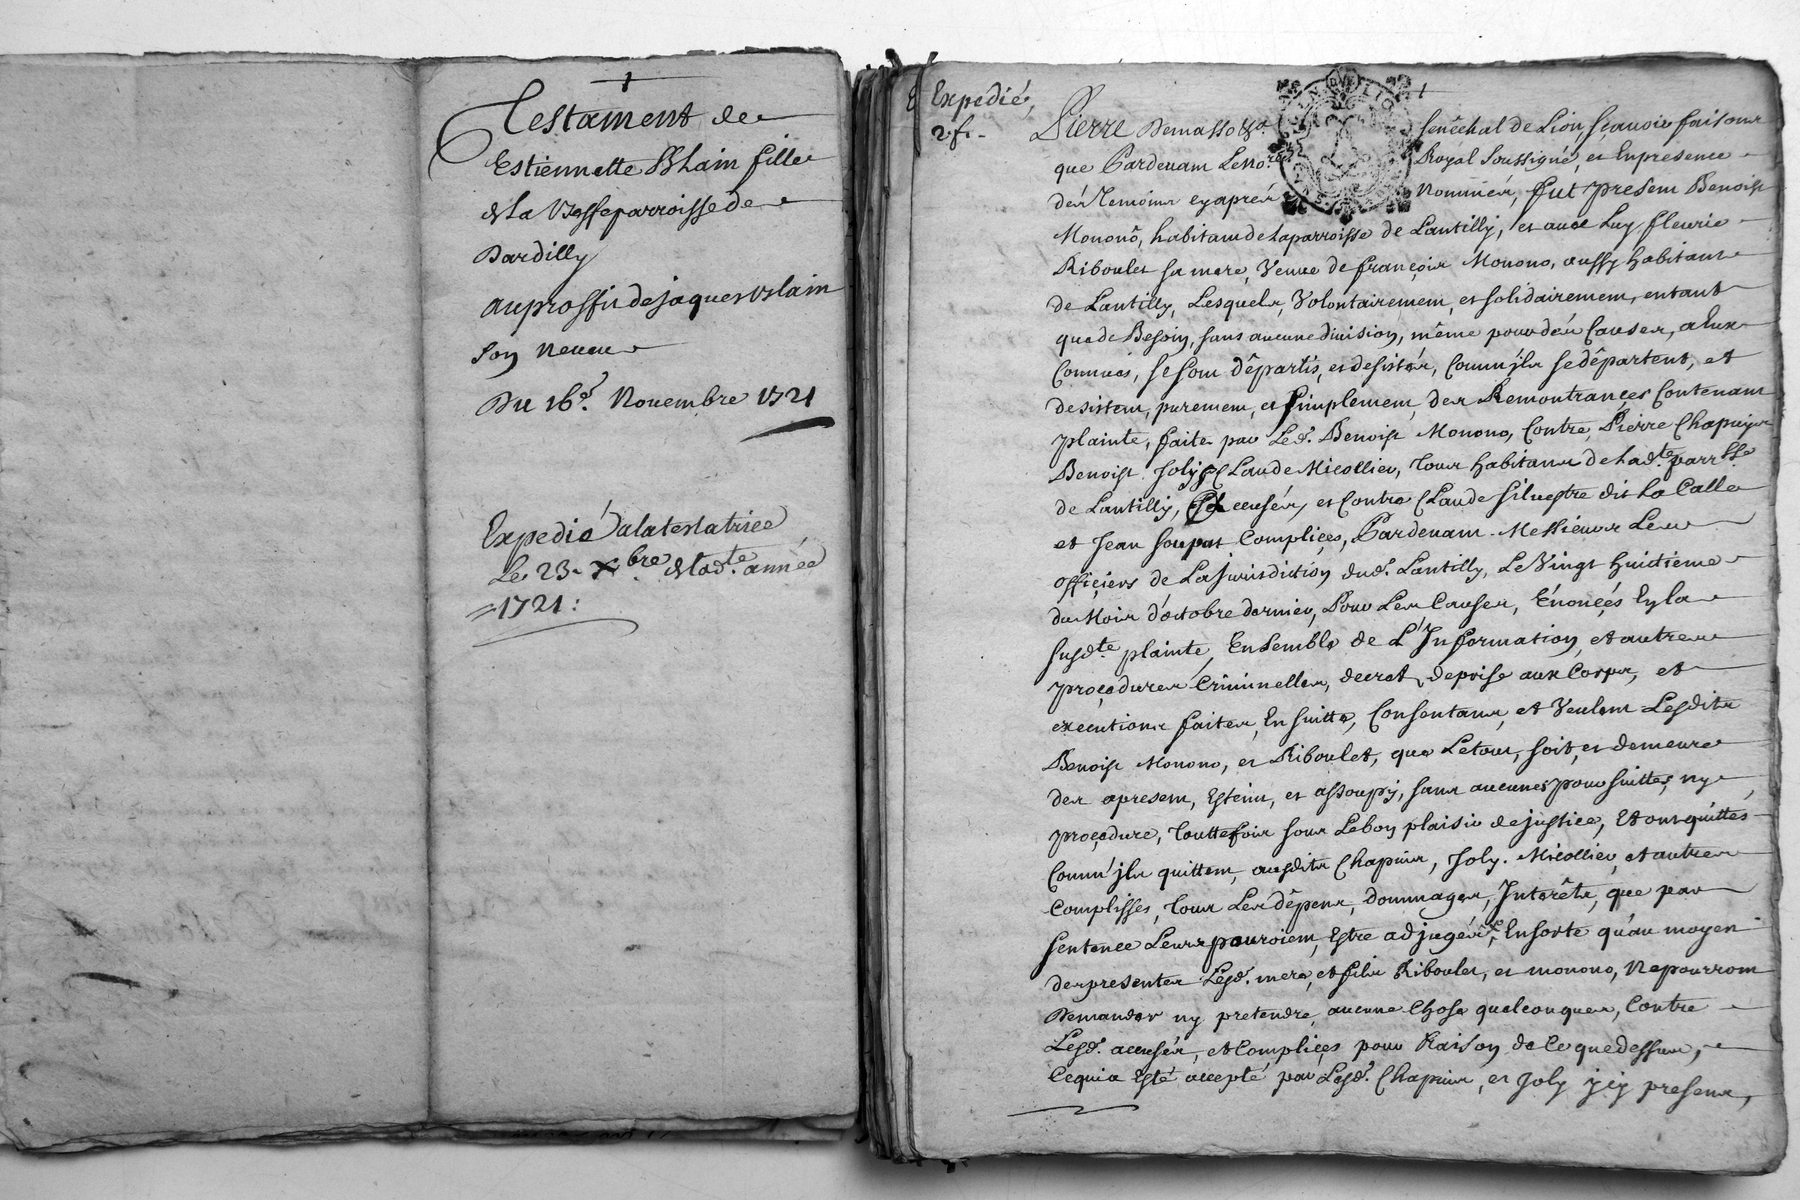 Testament de
Estiennette Blain fille
de la Vesse parroisse de
Dardilly
au proffit de jaques blain
son neueu
Du 16e. Nouembre 1721
Expedié a la testatrice
Le 23. Xbre de lad.te année
1721:
Expedié,
2 f.
Pierre Demasso &a. senêchal de Lion, sçauoir faisons
que Pardeuant Le No.re Royal soussigné, et En presence
des Temoins cy aprés Nommés, fut present Benoist
Monono, habitant de la parroisse de Lantilly, et auec Luy fleurie
Riboulet sa mere, Veuue de françois Monono, aussy habitante
de Lantilly, Lesquels, Volontairement, et solidairement, entant
que de Besoin, sans aucune diuision, même pour des Causes, a Eux
Connues, se sont dêpartis, et desistés, Comm'jls se dêpartent, et
desistent, purement, et simplement, des Remontrances Contenant
plainte, faite par Led. Benoist Monono, Contre, Pierre Chapuys
Benoist Joly, Claude Micollier, tous habitans de lad.te parr.sse
de Lantilly, accusés, et Contre Claude siluestre dit La Calle
et Jean soupat Complices, Pardeuant Messieurs Les
officiers de La Jurisdiction dud. Lantilly, Le Vingt huictième
du Mois d'octobre dernier, Pour Les Causes, Enoncés En la
susd.te plainte, Ensemble de L'Information, et autres
procedures Criminelles, decret de prise aux Corps, et
executions faites, En suitte, Consentans, et Veulent Lesdits
Benoist Monono, et Riboulet, que Le tout, soit, et demeure
des apresent, Esteint, et assoupy, sans aucunes poursuittes, ny
procedure, touttefois sous Le bon plaisir de justice, Et ont quittés
Comm'jls quittent, ausdits Chapuis, Joly, Micollier, et autres
Complisses, tous Les dêpens, dommages, Interêts, que par
sentence Leurs pouroient, Estre adjugés, En sorte qu'au moyen
des presentes Lesd. mere, et fils Riboulet, et monono, Ne pourront
Demander ny pretendre, aucune Chose quelconques, Contre
Lesd. accusés, et Complices pour Raison de Ce que dessus,
Ce qui a Esté accepté par Lesd. Chapuis, et Joly jcy presens,